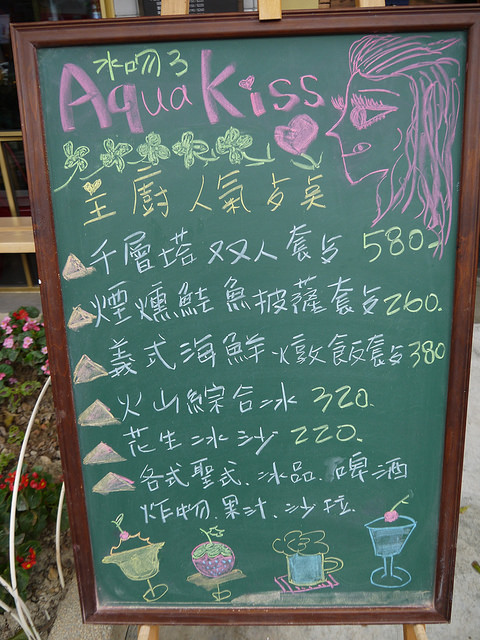 水吻3
Aqua Kiss
主廚人氣餐點
千層塔双人套餐 580.
煙燻鮭魚披薩套餐 260.
義式海鮮燉飯套餐 380
火山綜合冰 320.
花生冰沙 220.
各式聖式.冰品.啤酒
炸物.果汁.沙拉.